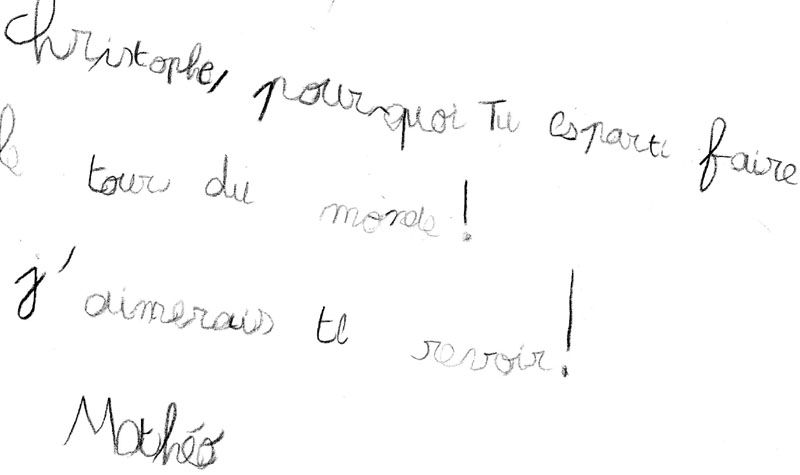 Christophe, pourquoi Tu es parti faire
le tour du monde !
j'aimerais te revoir !
Mathéo